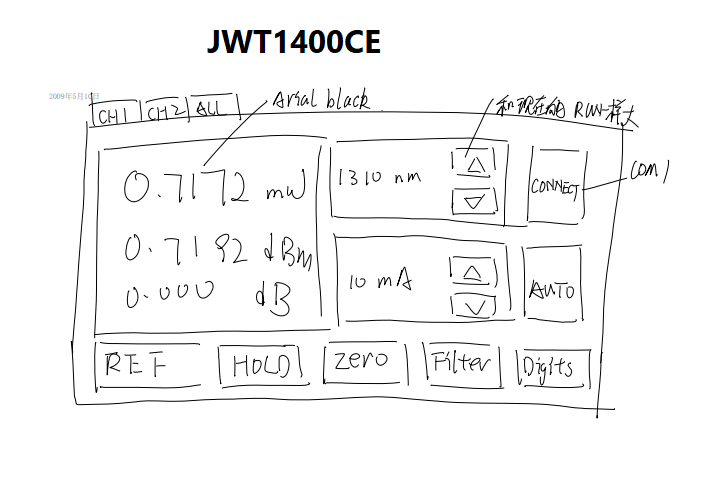 JWT1400CE
2009年5月10日
CH1 CH2 ALL
Arial black
和现在的 RUN一样大
0.7172 mW
0.7192 dBm
0.000 dB
1310 nm
CONNECT
COM1
10 mA
AUTO
REF HOLD zero Filter Digits